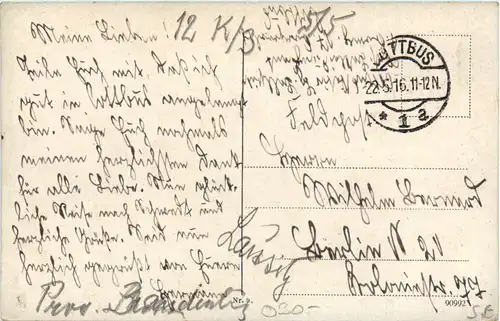 Meine Lieben!
Teile Euch mit, daß ich
gut in Cottbus angekommen
bin. Sage Euch nochmals
meinen herzlichsten Dank
für alle Liebe. Nun glück-
liche Reise nach Schwedt und
herzliche Grüße. Seid nun
herzlich gegrüßt von Eurem
12 K/3
5/5
COTTBUS
22.5.16. 11-12 N.
* 1 a
Feldpost
Herrn
Wilhelm
Berlin N 20
Koloniestr. 77
Lausitz
Prov. Brandenbg
Nr. 9.
90992